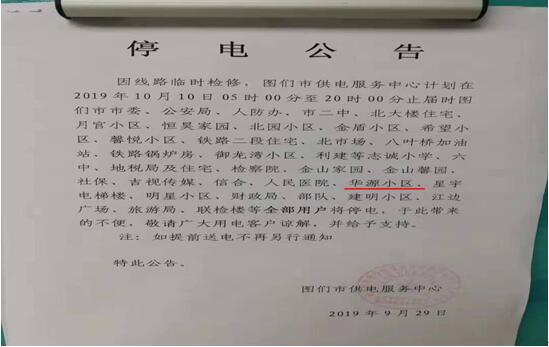 停电公告
因线路临时检修，图们市供电服务中心计划在
2019年10月10日05时00分至20时00分止届时图
们市市委、公安局、人防办、市二中、北大楼住宅、
月宫小区、恒昊家园、北园小区、金盾小区、希望小
区、馨悦小区、铁路二段住宅、北市场、八叶桥加油
站、铁路锅炉房、御龙湾小区、利建等志诚小学、六
中、地税局及住宅、检察院、金山家园、金山馨园、
社保、吉视传媒、信合、人民医院、华源小区、星宇
电梯楼、明星小区、财政局、部队、建明小区、江边
广场、旅游局、联检楼等全部用户将停电，于此带来
的不便，敬请广大用电客户谅解，并给予支持。
注：如提前送电不再另行通知
特此公告。
图们市供电服务中心
2019年9月29日